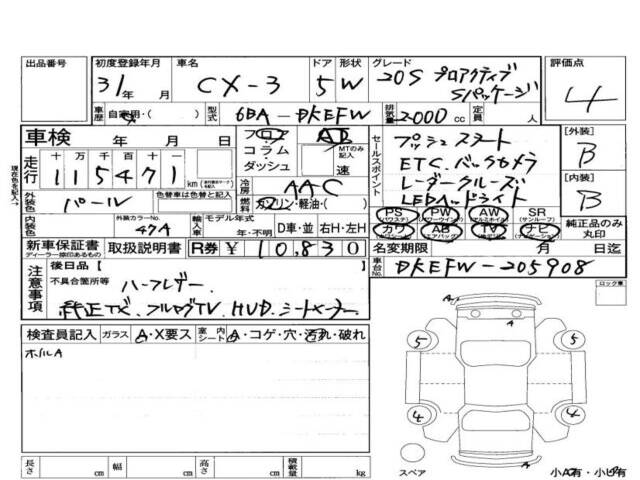 出品番号 初度登録年月 車名 ドア 形状 グレード 評価点
31年 月 CX-3 5 W 20S プロアクティブ
Sパッケージ 4
車歴 自家用・( ) 型式 6BA-DKEFW 排気量 2000 cc 定員 人
車検 年 月 日 フロア AT セールスポイント プッシュスタート [外装]
コラム MTのみ記入 ETC.バックカメラ B
走行 十 万 千 百 十 一 ダッシュ 速 レーダークルーズ [内装]
現在色を記入→ 115471 km 冷房 AAC LEDヘッドライト B
外装色 パール 色替車は色替と記入 燃料 ガソリン・軽油・( )
PS (パワステ) PW (パワーウインド) AW (アルミホイル) SR (サンルーフ) 純正品のみ丸印
内装色 外装カラーNo. 47A 輸入車 モデル年式 年・不明 D車・並 右H・左H
カワ AB (エアバッグ) TV ナビ (ナビゲーション)
新車保証書 ディーラー捺印あるもの 取扱説明書 R券 ¥10,830 名変期限 月 日迄
注意事項 後日品【 】 車台No. DKEFW-205908
不具合箇所等 ハーフレザー ロック車
純正TV、フルセグTV、HUD、シートヒーター
検査員記入 ガラス A・X要ス 室内シート A・コゲ・穴・汚れ・破れ
ホイルA
A
5 5
4 4
A
長さ cm 幅 cm 高さ cm 積載量 kg スペア 小A有・小凹有